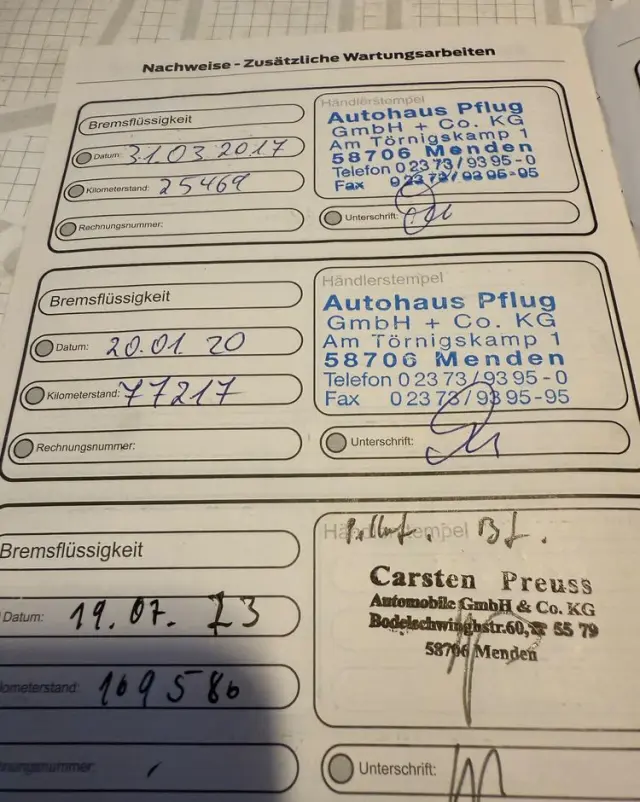 Nachweise - Zusätzliche Wartungsarbeiten
Bremsflüssigkeit
Datum: 31.03.2017
Kilometerstand: 25469
Rechnungsnummer:
Händlerstempel
Autohaus Pflug
GmbH + Co. KG
Am Törnigskamp 1
58706 Menden
Telefon 0 23 73 / 93 95 - 0
Fax 0 23 73 / 93 95 - 95
Unterschrift:
Bremsflüssigkeit
Datum: 20.01 20
Kilometerstand: 77217
Rechnungsnummer:
Händlerstempel
Autohaus Pflug
GmbH + Co. KG
Am Törnigskamp 1
58706 Menden
Telefon 0 23 73 / 93 95 - 0
Fax 0 23 73 / 93 95 - 95
Unterschrift:
Bremsflüssigkeit
Datum: 19.07. 23
lometerstand: 109586
nungsnummer:
Händlerstempel
Carsten Preuss
Automobile GmbH & Co. KG
Bodelschwinghstr.60, ☎ 55 79
58706 Menden
Unterschrift: